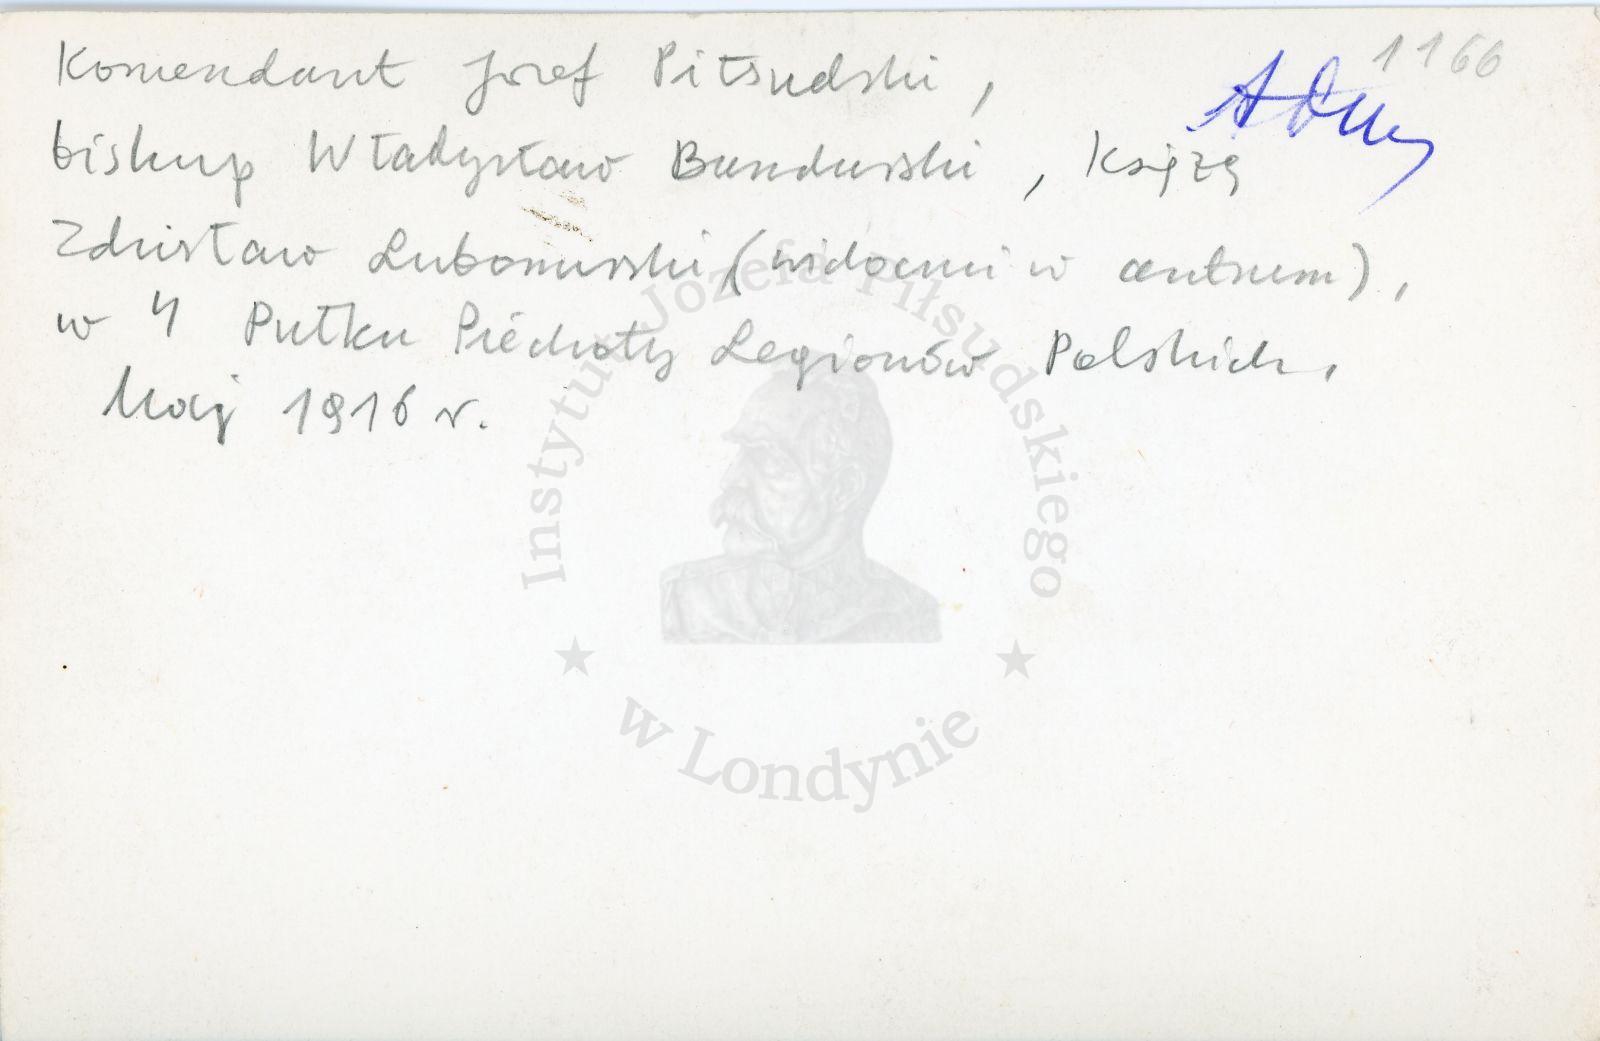 1166
Komendant Józef Piłsudski,
biskup Władysław Bandurski, Książę
Zdzisław Lubomirski (widoczni w centrum),
w 4 Pułku Piechoty Legionów Polskich,
Maj 1916 r.
Instytut Józefa Piłsudskiego
w Londynie